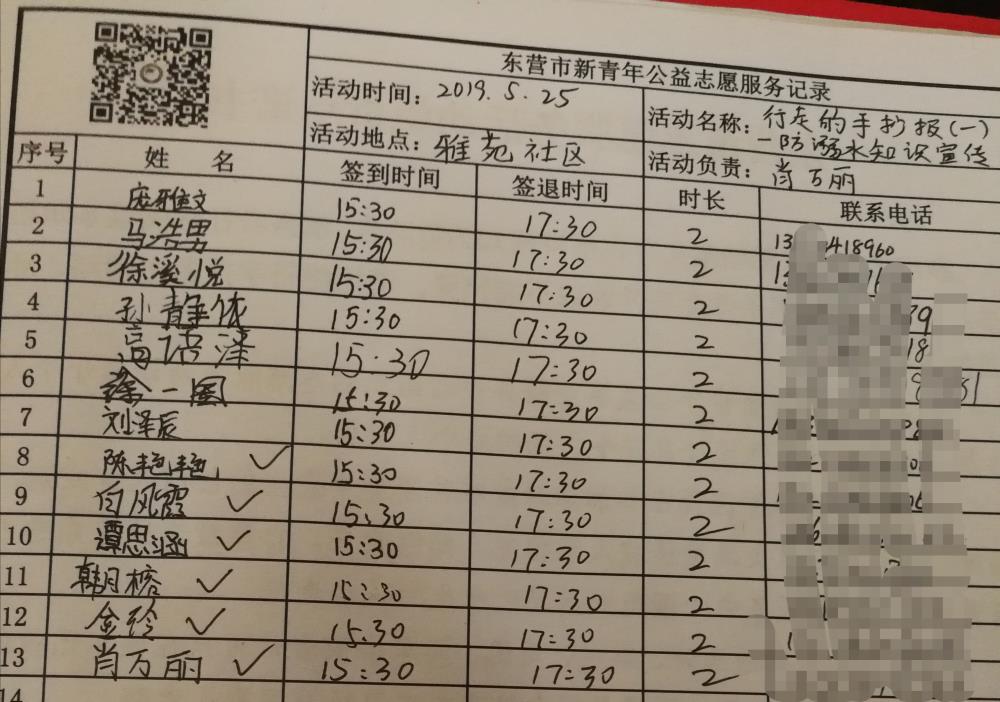 东营市新青年公益志愿服务记录
活动时间：2019.5.25
活动名称：行走的手抄报（一）
—防溺水知识宣传
活动地点：雅苑社区
活动负责：肖万丽
序号 姓 名 签到时间 签退时间 时长 联系电话
1 庞雅文 15:30 17:30 2
2 马浩男 15:30 17:30 2
3 徐溪悦 15:30 17:30 2
4 孙静依 15:30 17:30 2
5 高语泽 15:30 17:30 2
6 徐一图 15:30 17:30 2
7 刘泽辰 15:30 17:30 2
8 陈艳艳 ✓ 15:30 17:30 2
9 白风霞 ✓ 15:30 17:30 2
10 谭思涵 ✓ 15:30 17:30 2
11 韩月榕 ✓ 15:30 17:30 2
12 金铃 ✓ 15.30 17:30 2
13 肖万丽 ✓ 15:30 17:30 2
14